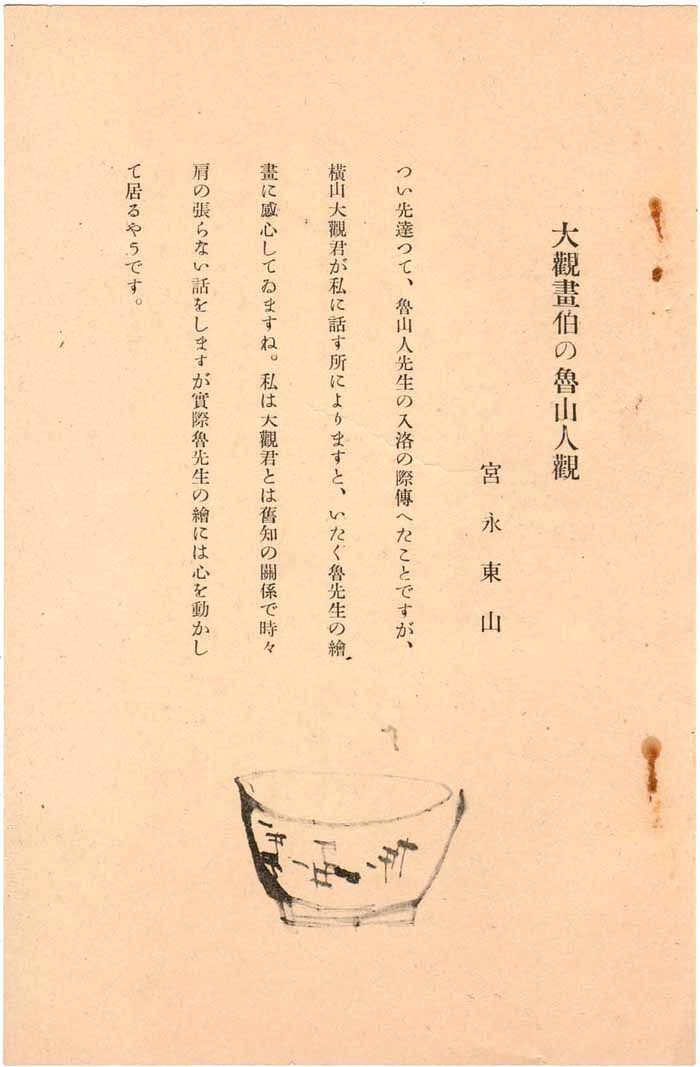 大觀畫伯の魯山人觀
宮永東山
つい先達つて、魯山人先生の入洛の際傳へたことですが、
横山大觀君が私に話す所によりますと、いたく魯先生の繪
畫に感心してゐますね。私は大觀君とは舊知の關係で時々
肩の張らない話をしますが實際魯先生の繪には心を動かし
て居るやうです。